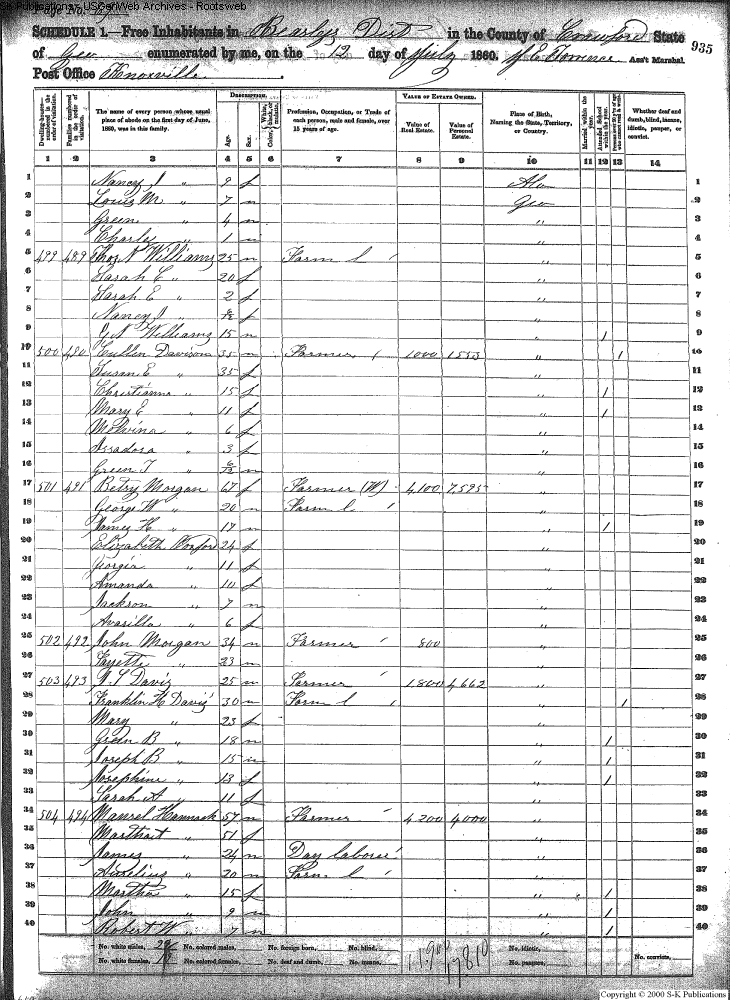 S-K Publications - USGenWeb Archives - Rootsweb
Page No.
SCHEDULE 1.—Free Inhabitants in Bearlys Dist in the County of Crawford State
of Geo enumerated by me, on the 12 day of July 1860. Ass't Marshal.
935
Post Office Knoxville
Dwelling-houses—numbered in the order of visitation. Families numbered in the order of visitation. The name of every person whose usual place of abode on the first day of June, 1860, was in this family. DESCRIPTION. Age. Sex. Color, White, black, or mulatto. Profession, Occupation, or Trade of each person, male and female, over 15 years of age. VALUE OF ESTATE OWNED. Value of Real Estate. Value of Personal Estate. Place of Birth, Naming the State, Territory, or Country. Married within the year. Attended School within the year. Whether deaf and dumb, blind, insane, idiotic, pauper, or convict.
1 2 3 4 5 6 7 8 9 10 11 12 13 14
1 Nancy J " 9 f Ala 1
2 Louis M " 7 m Geo 2
3 Green " 4 m " 3
4 Charles " 1 m " 4
5 499 489 Thos N Williams 25 m Farm L / " 5
6 Sarah C " 20 f " 6
7 Sarah E " 2 f " 7
8 Nancy J " f " 8
9 G N Williams 15 m " / 9
10 500 490 Cullen Davison 35 m Farmer / 1000 1553 " / 10
11 Susan E " 35 f " 11
12 Christianna " 15 f " / 12
13 Mary E " 11 f " / 13
14 Molvina " 6 f " 14
15 Assadora " 3 f " 15
16 Green T " 6/12 m " 16
17 501 491 Betsy Morgan 67 f Farmer (W) 4,100 7,595 " 17
18 George W " 20 m Farm L / " 18
19 James H " 17 m " / 19
20 Elizabeth 24 f " 20
21 Georgia " 11 f " 21
22 Amanda " 10 f " 22
23 Jackson " 7 m " 23
24 Avarilla " 6 f " 24
25 502 492 John Morgan 34 m Farmer / 800 " 25
26 Fayette " 23 m " 26
27 503 493 Davis 25 m Farmer / 1,800 4,662 " 27
28 Franklin H Davis 30 m Farm L / " / 28
29 Mary " 23 f " 29
30 Green B " 18 m " / 30
31 Joseph B " 15 m " / 31
32 Josephine " 13 f " / 32
33 Sarah A " 11 f " 33
34 504 494 Manrel Hammack 57 m Farmer / 4200 4000 " 34
35 Marthat " 51 f " 35
36 James " 24 m Day laborer / " 36
37 Aurelius " 20 m Farm L / " 37
38 Martha " 15 f " / 38
39 John " 9 m " / 39
40 Robert W " 7 m " / 40
No. white males, No. colored males, No. foreign born, No. blind, 11900 17810 No. idiotic,
No. white females, No. colored females, No. deaf and dumb, No. insane, No. paupers, No. convicts,
Copyright © 2000 S-K Publications